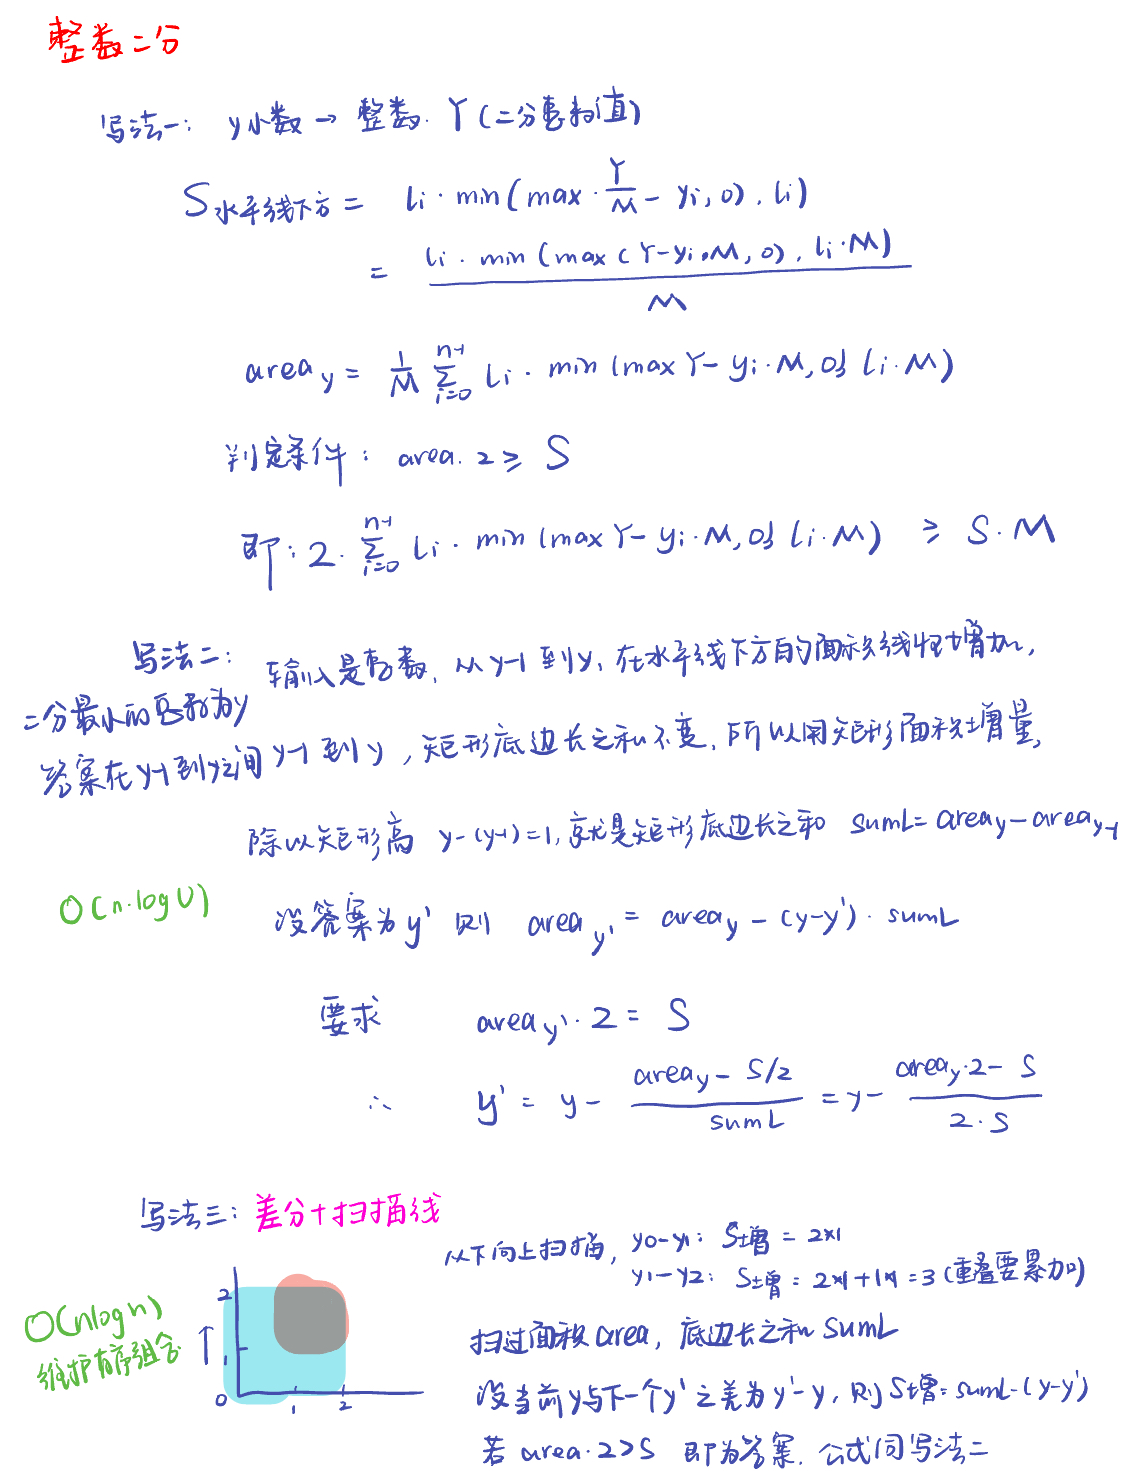 整数二分
写法一: y小数→整数. Y(二分整数值)
S水平线下方 = li · min(max · Y/M - yi, 0), li)
= li · min(max(Y-yi·M, 0), li·M) / M
area y = 1/M n-1∑i=0 li · min(max Y- yi·M, 0) li·M)
判定条件: area·2 ≥ S
即: 2· n-1∑i=0 li · min(max Y- yi·M, 0) li·M) ≥ S·M
写法二: 输入是整数, 从y-1到y, 在水平线下方的面积线性增加,
二分最小的整数为y
答案在y-1到y之间 y-1到y, 矩形底边长之和不变, 所以用矩形面积增量,
除以矩形高 y-(y-1)=1, 就是矩形底边长之和 sumL= area y - area y-1
O(n·logU)
设答案为y' 则 area y' = area y - (y-y')·sumL
要求 area y'·2 = S
∴ y' = y - area y - S/2 / sumL = y - area y·2 - S / 2·S
写法三: 差分+扫描线
从下向上扫描, y0-y1: S增 = 2×1
y1-y2: S增 = 2×1+1×1 = 3 (重叠要累加)
O(nlogn)
维护有序组合
2
1
0
1 2
扫过面积area, 底边长之和sumL
设当前y与下一个y'之差为y'-y, 则S增=sumL·(y-y')
若area·2>S 即为答案. 公式同写法二